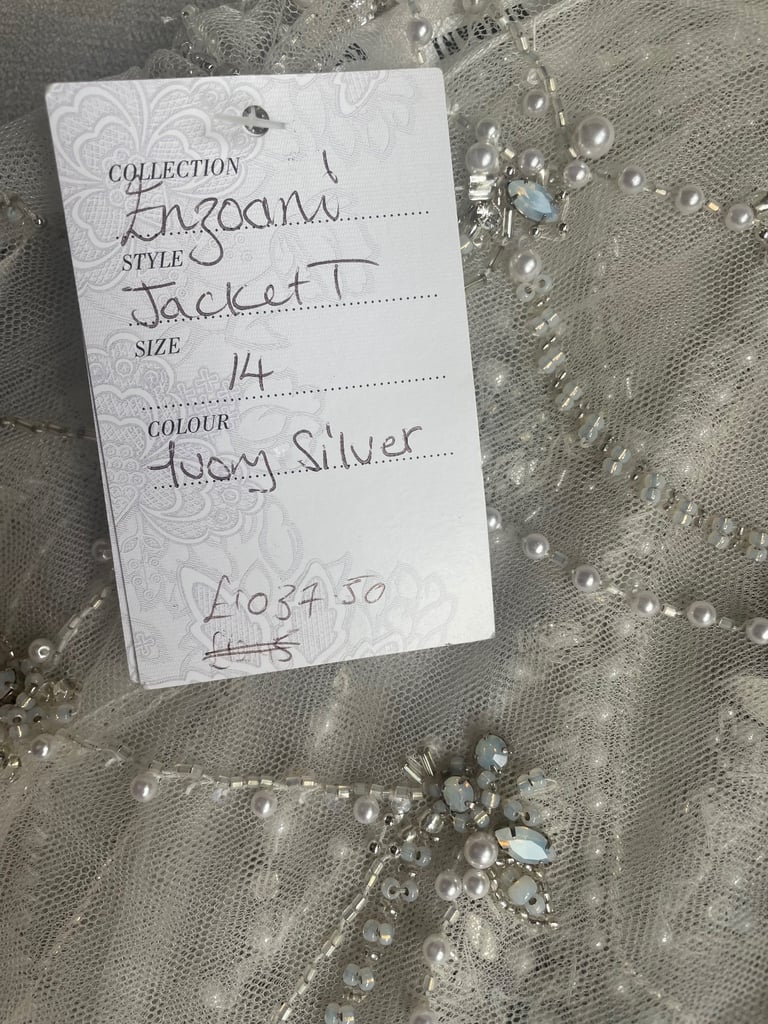 COLLECTION
Enzoani
STYLE
Jacket T
SIZE
14
COLOUR
Ivory Silver
£1037.50